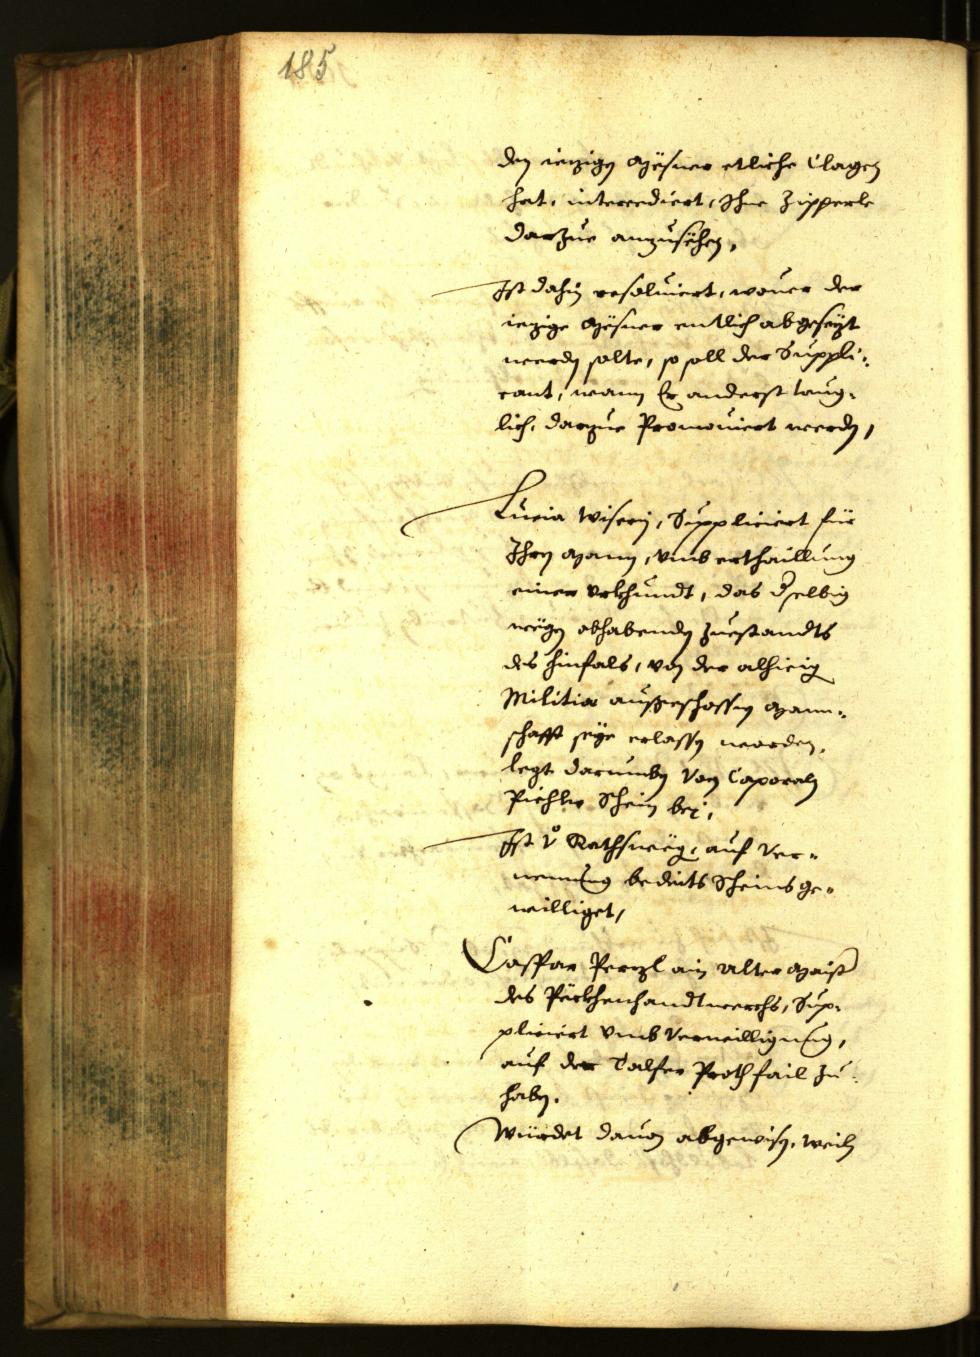 185
den iezigen Mesner etliche Clagen
hat, intercediert, Ihne Zipperle
darzue anzusehen,
Ist dahin resoluiert, wouer der
iezige Mesner entlich abgesezt
werden solte, so soll der Suppli¬
cant, wann Er anderst taug¬
lich, darzue Promouiert werden,
Lucia Wiserin, Suppliciert für
Ihren Mann, vmb erthaillung
einer vrkhundt, das derselbig
wegen obhabenden Zuestandts
des hinfals, von der alhieig
Militia ausgeschossen Mann¬
schafft seye erlassen worden,
legt darumben Von Caporaln
Piehler Schein bei,
Ist Rathsweg, auf Ver¬
nemung bedeits Scheins ge¬
williget,
Casspar Perzl ain alter Maister
des Pekhenhandtwerchs, Sup¬
pliciert vmb Verwilligung,
auf der Talfer Proth fail zu
haben.
Würdet dauon abgewisen, weiln